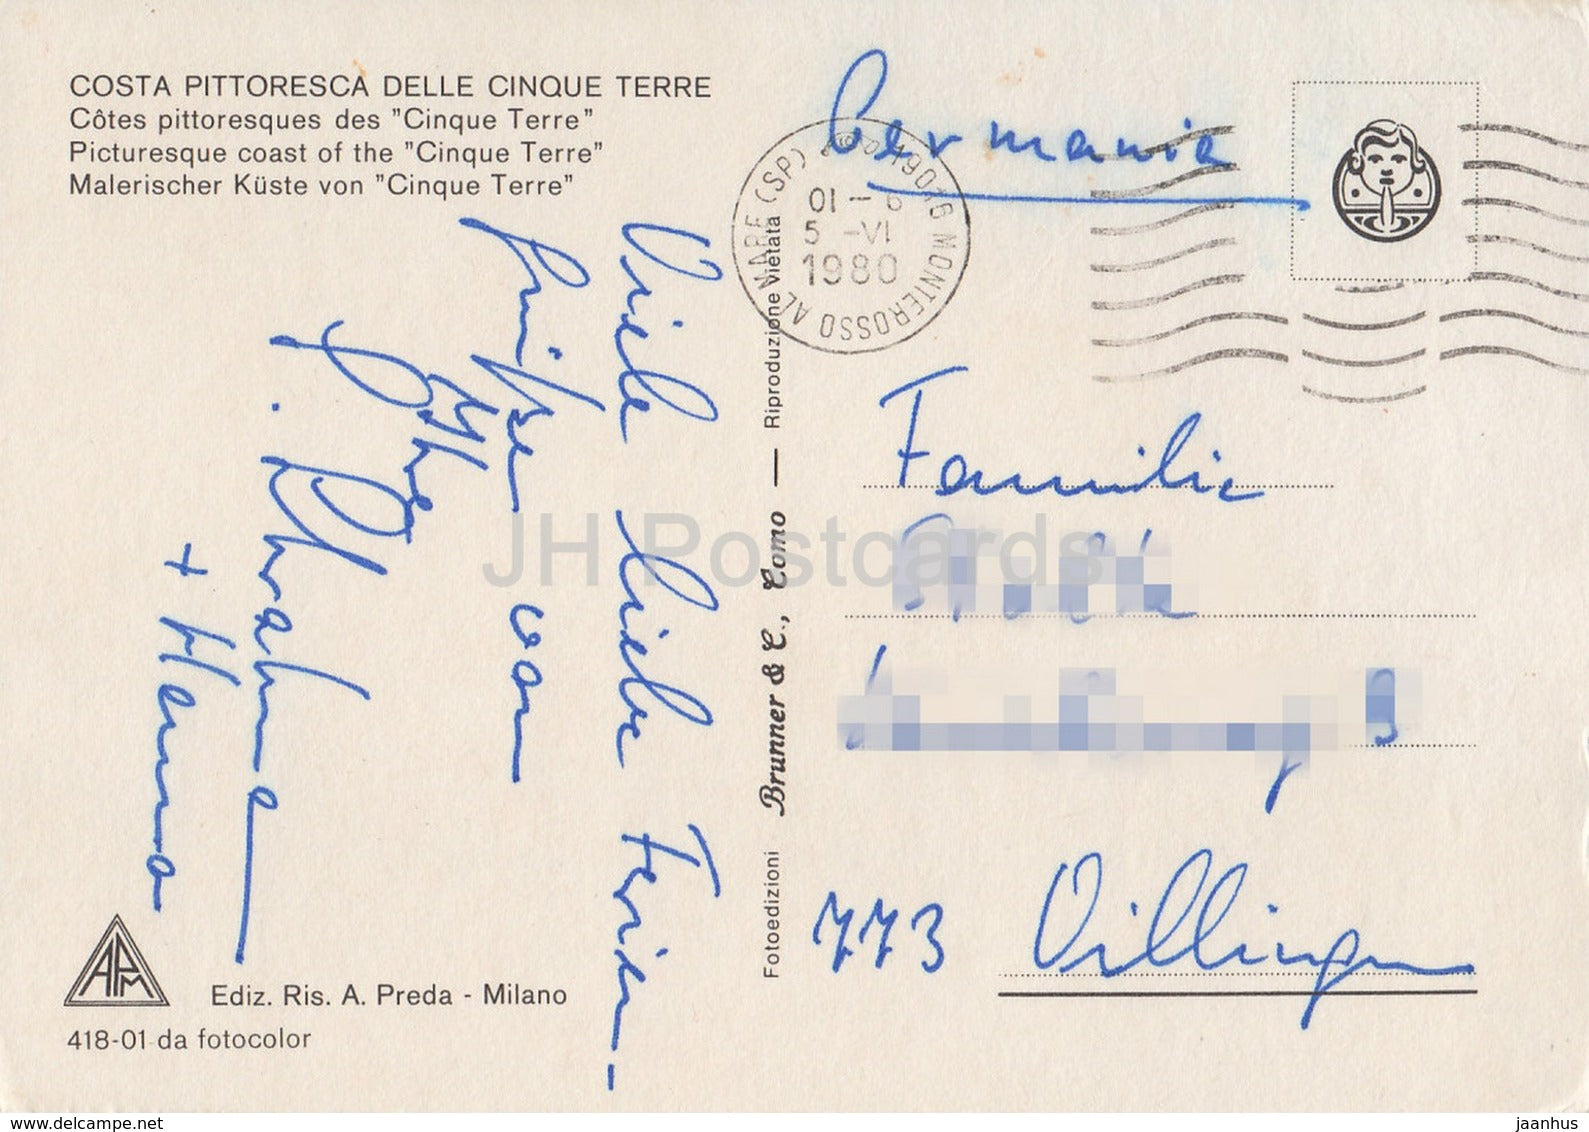 COSTA PITTORESCA DELLE CINQUE TERRE
Côtes pittoresques des "Cinque Terre"
Picturesque coast of the "Cinque Terre"
Malerischer Küste von "Cinque Terre"
Viele liebe Ferien-
grüße von
+ Hanna
Ediz. Ris. A. Preda - Milano
418-01 da fotocolor
Fotoedizioni Brunner & C., Como — Riproduzione vietata
19016 MONTEROSSO AL MARE (SP)
5 -VI
1980
Germania
Familie
773 Villingen
JH Postcards
www.delcampe.net
jaanhus